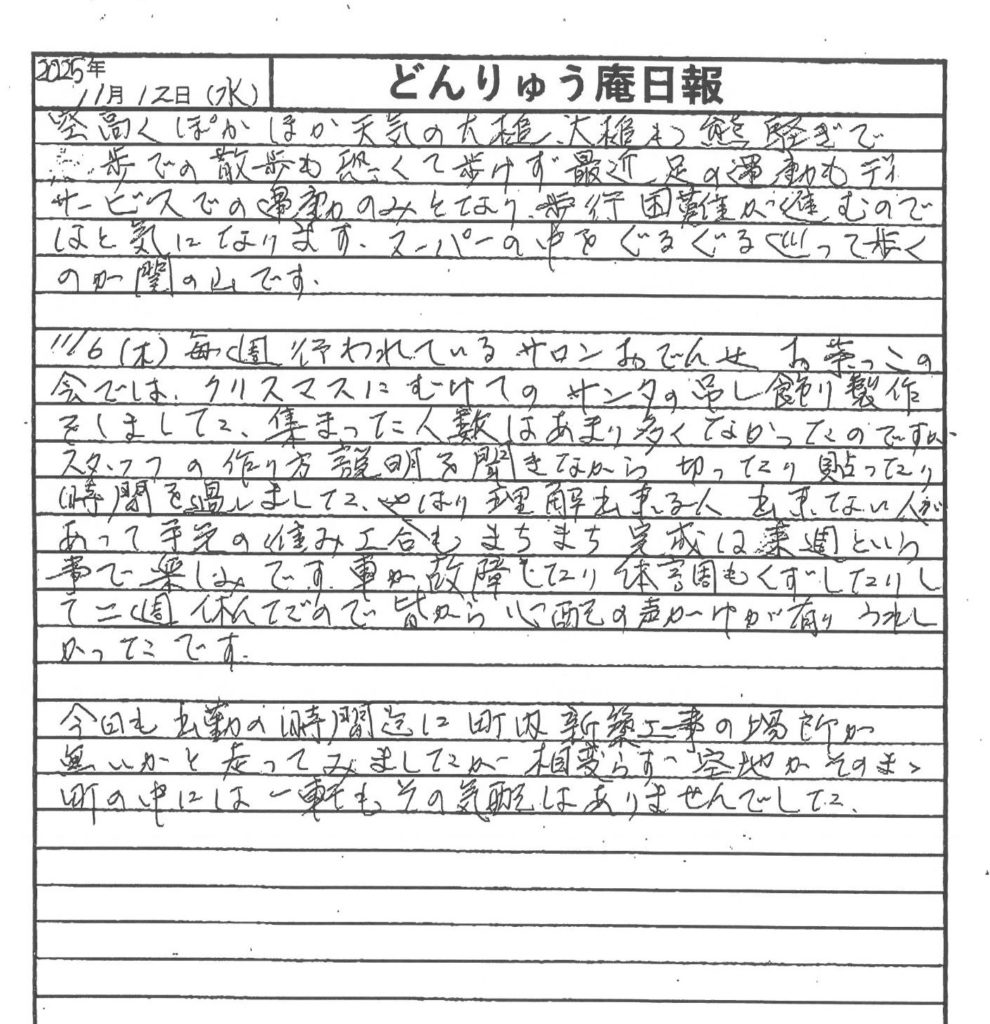 2025年
11月12日(水)
どんりゅう庵日報
空高くぽかぽか天気の大槌、大槌も熊騒ぎで
歩での散歩も恐くて歩けず最近、足の運動もディ
サービスでの運動のみとなり、歩行困難が進むので
はと気になります。スーパーの中をぐるぐる巡って歩く
のが関の山です。
11/6(木)毎週行われているサロンおでんせ お茶っこの
会では、クリスマスにむけてのサンタの吊し飾り製作
をしました、集まった人数はあまり多くなかったのですが
スタッフの作り方説明を聞きながら 切ったり貼ったり
時間を過しました、やはり理解出来る人 出来ない人が
あって手先の進み工合もまちまち 完成は来週という
事で楽しみです。車が故障したり 体調もくずしたりし
て二週休んだので 皆から心配の声かけが有り うれし
かったです。
今回も出勤の時間迄に町内新築工事の場所が
無いかと走ってみましたが 相変らず空地がそのまゝ
町の中には一軒も、その気配はありませんでした、